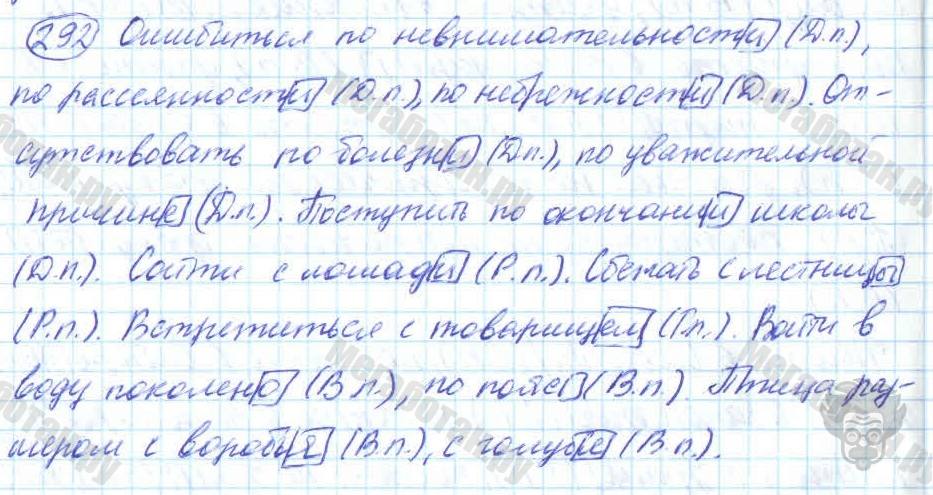 292 Ошибиться по невнимательности (Д.п.),
по рассеянности (Д.п.), по небрежности (Д.п.). От-
сутствовать по болезни (Д.п.), по уважительной
причине (Д.п.). Поступить по окончании школы
(Д.п.). Сойти с лошади (Р.п.). Сбежать с лестницы
(Р.п.). Встретиться с товарищем (Т.п.). Войти в
воду поколено (В.п.), по пояс (В.п.). Птица раз-
мером с воробья (В.п.), с голубя (В.п.).
мегаботан.ру